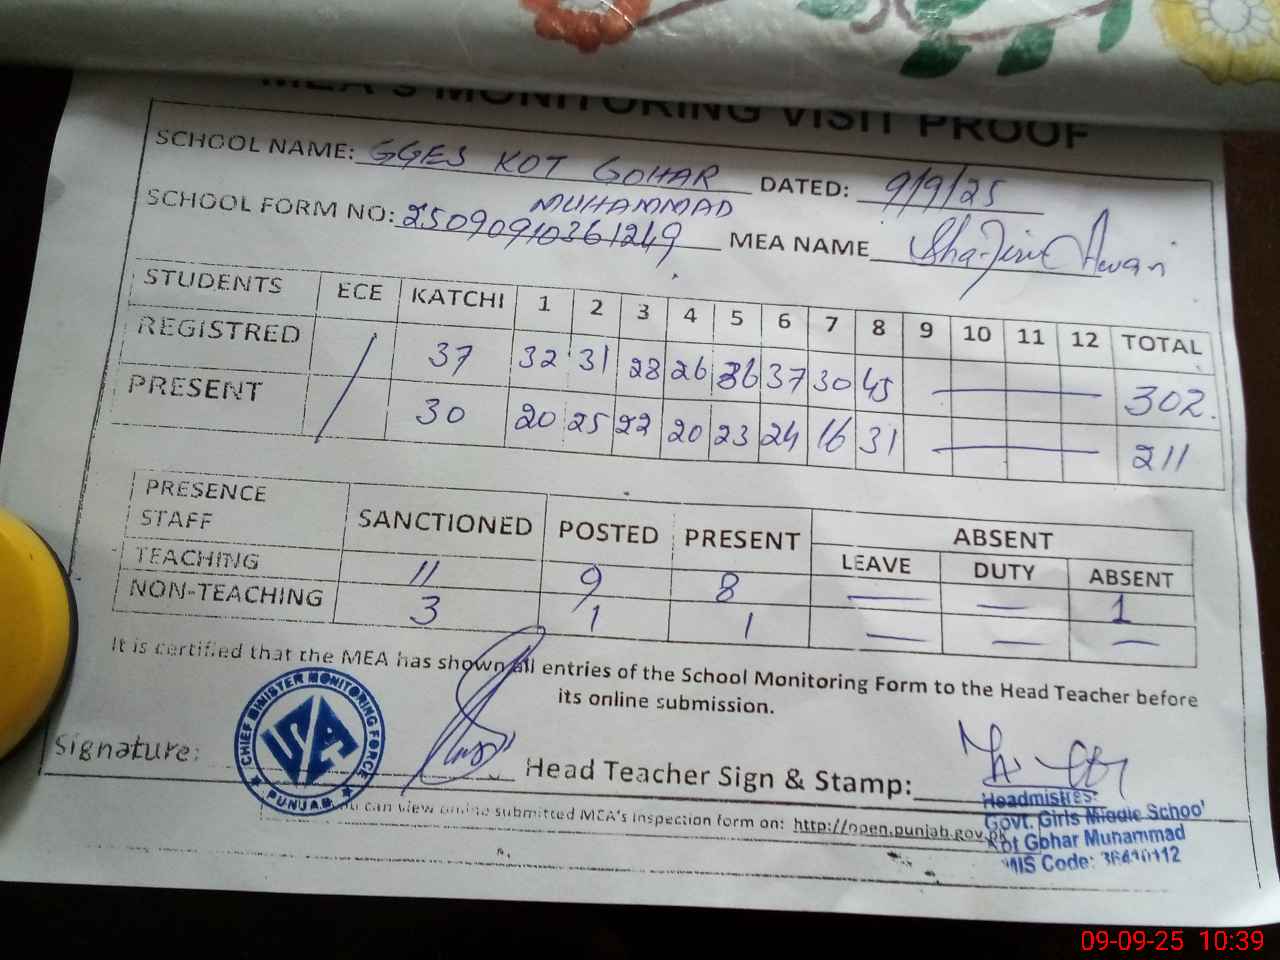 MEA'S MONITORING VISIT PROOF
SCHOOL NAME: GGES KOT GOHAR DATED: 9/9/25
MUHAMMAD
SCHOOL FORM NO: 25090910361249 MEA NAME Awan
STUDENTS ECE KATCHI 1 2 3 4 5 6 7 8 9 10 11 12 TOTAL
REGISTRED / 37 32 31 28 26 36 37 30 45 — 302.
PRESENT 30 20 25 22 20 23 24 16 31 — 211
PRESENCE STAFF SANCTIONED POSTED PRESENT ABSENT
LEAVE DUTY ABSENT
TEACHING 11 9 8 — — 1
NON-TEACHING 3 1 1 — — —
It is certified that the MEA has shown all entries of the School Monitoring Form to the Head Teacher before
its online submission.
CHIEF MINISTER MONITORING FORCE
PUNJAB
Signature: Head Teacher Sign & Stamp:
Headmistress
Govt. Girls Middle School
Kot Gohar Muhammad
You can view online submitted MEA's inspection form on: http://open.punjab.gov.pk
MIS Code:
09-09-25 10:39